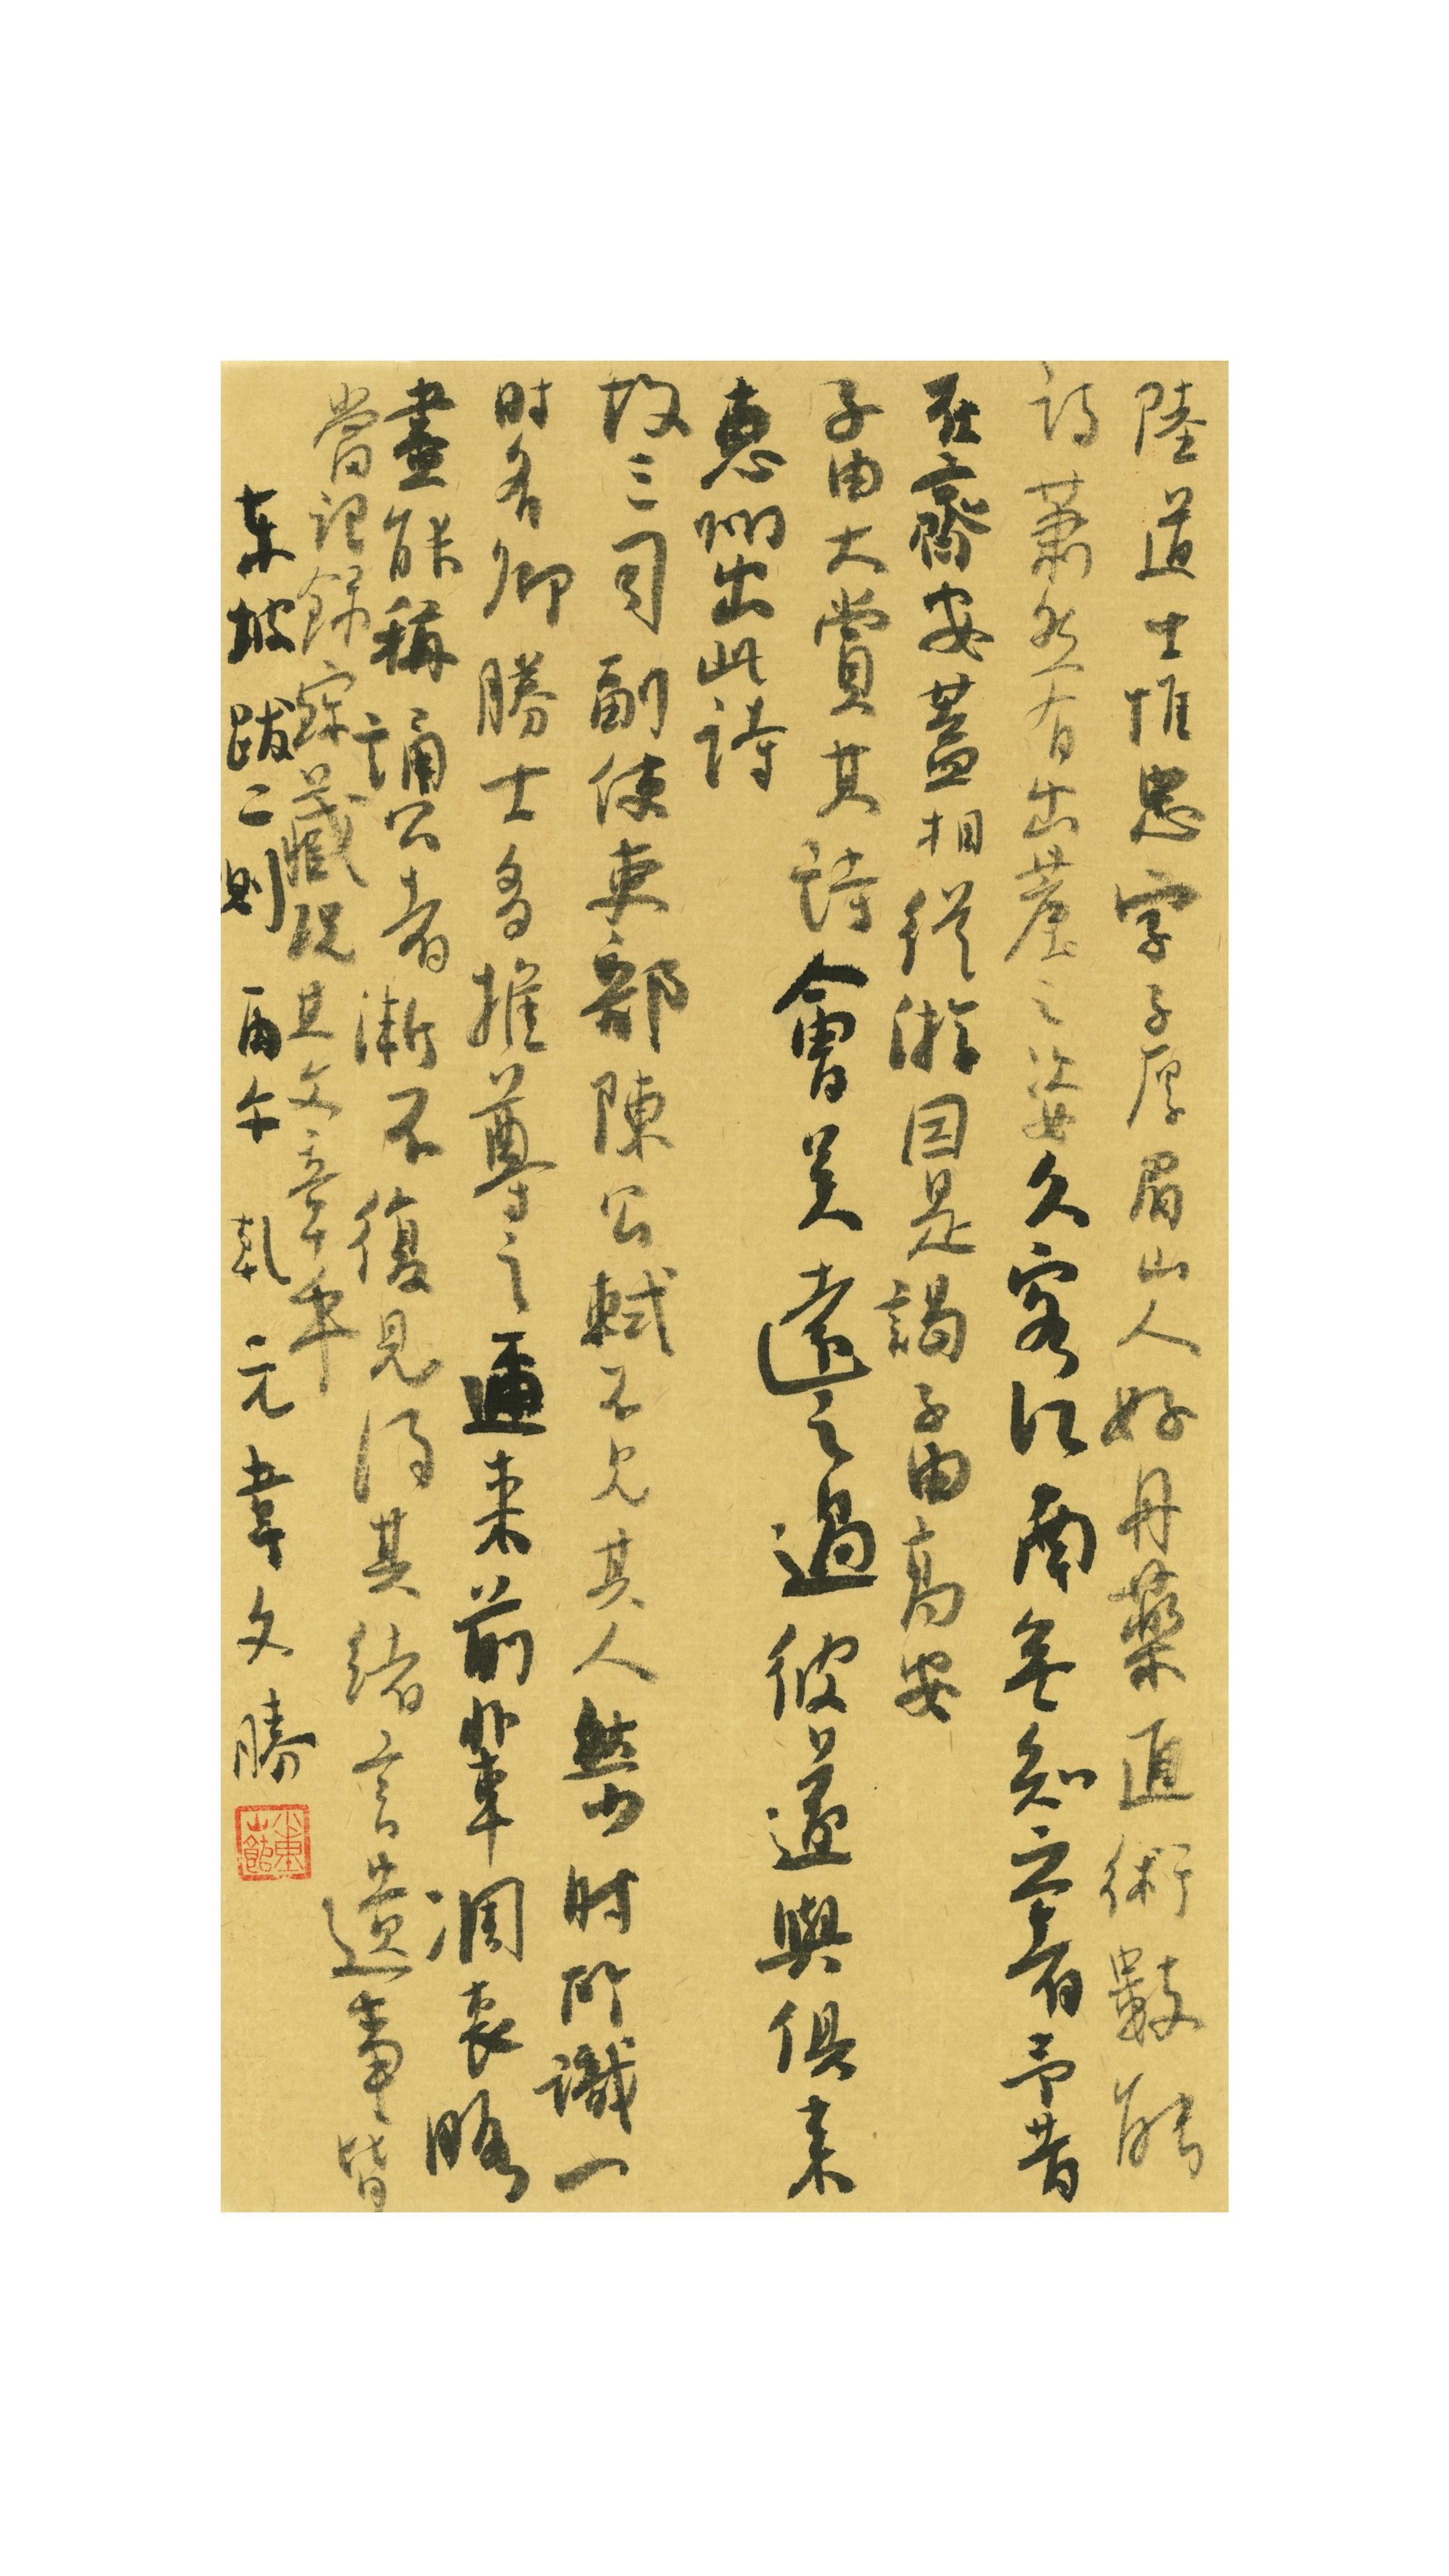 陸道士惟忠字子厚眉山人好丹藥通術數能
詩蕭然有出塵之姿久客江南無知之者予昔
在齋安蓋相從游因是謁子由高安
子由大賞其詩會吴遠之過彼遂與俱來
惠州出此詩
故三司副使吏部陳公軾不見其人然少时所識一
时名卿勝士多推尊之邇来前輩凋喪略
盡能稱誦公者漸不復見得其緒言遺事皆
當記錄寶藏况其文章乎
东坡跋二則 丙午 元 韋文勝